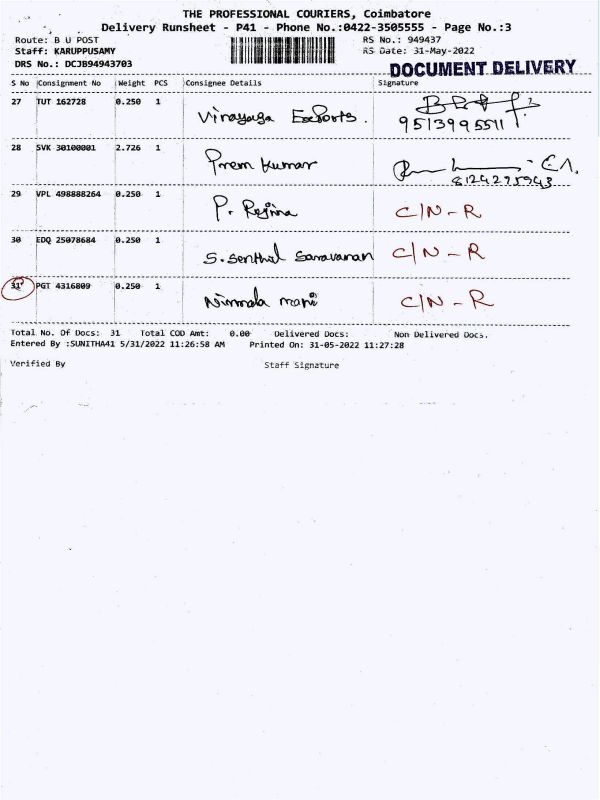 THE PROFESSIONAL COURIERS, Coimbatore
Delivery Runsheet - P41 - Phone No.:0422-3505555 - Page No.:3
Route: B U POST RS No.: 949437
Staff: KARUPPUSAMY RS Date: 31-May-2022
DRS No.: DCJB94943703
DOCUMENT DELIVERY
S No Consignment No Weight PCS Consignee Details Signature
27 TUT 162728 0.250 1 Vinayaga Exports.
9513995511
28 SVK 30100001 2.726 1 Prem Kumar
8124275943
29 VPL 498888264 0.250 1 P. Rejina C/N - R
30 EDQ 25078684 0.250 1 S. Senthil Saravanan C/N - R
31 PGT 4316809 0.250 1 Nirmala mani C/N - R
Total No. Of Docs: 31 Total COD Amt: 0.00 Delivered Docs: Non Delivered Docs.
Entered By :SUNITHA41 5/31/2022 11:26:58 AM Printed On: 31-05-2022 11:27:28
Verified By Staff Signature